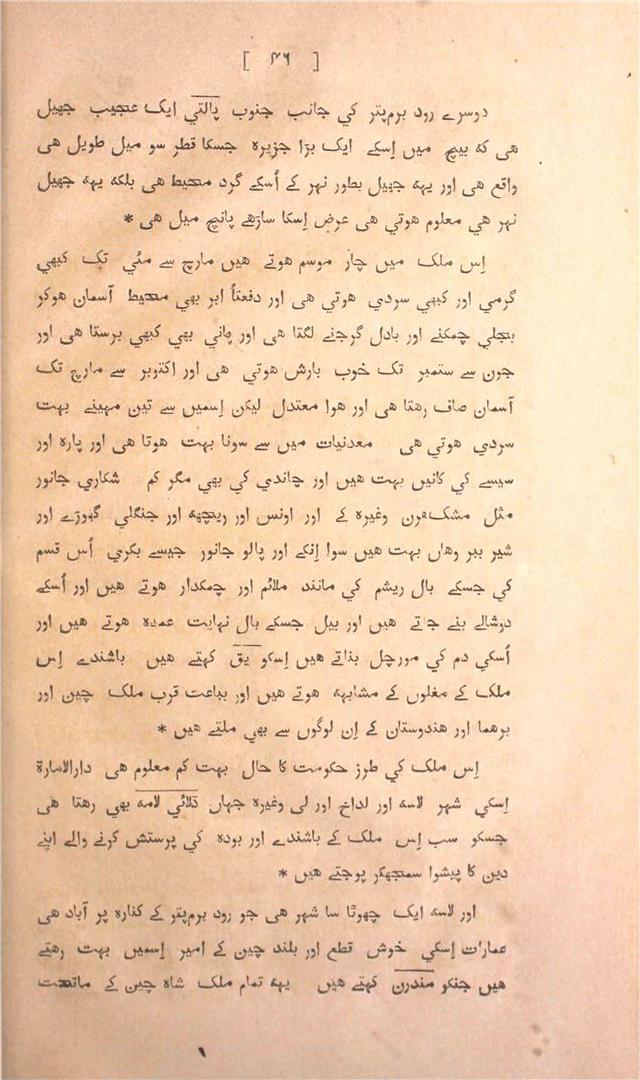 [ ۴۶ ]
دوسرے رود برم‌پتر کي جانب جنوب پالتي ایک عجیب جهیل
هی که بیچ میں اِسکے ایک بڑا جزیره جسکا قطر سو میل طویل هی
واقع هی اور یهه جهیل بطور نہر کے اُسکے گرد محیط هی بلکه یهه جهیل
نہر هي معلوم هوتي هی عرض اِسکا ساڑهے پانچ میل هی *
اِس ملک میں چار موسم هوتے هیں مارچ سے مئي تک کبھي
گرمي اور کبھي سردي هوتي هی اور دفعتاً ابر بھي محیط آسمان هوکر
بجلي چمکنے اور بادل گرجنے لگتا هی اور پاني بھي کبھي برستا هی اور
جون سے ستمبر تک خوب بارش هوتي هی اور اکتوبر سے مارچ تک
آسمان صاف رهتا هی اور هوا معتدل لیکن اِسمیں سے تین مہینے بہت
سردي هوتي هی معدنیات میں سے سونا بہت هوتا هی اور پاره اور
سیسے کي کانیں بہت هیں اور چاندي کي بھي مگر کم شکاري جانور
مثل مشک‌هرن وغیره کے اور اونس اور ریچهه اور جنگلي گهوڑے اور
شیر ببر وهاں بہت هیں سوا اِنکے اور پالو جانور جیسے بکري اُس قسم
کي جسکے بال ریشم کي مانند ملائم اور چمکدار هوتے هیں اور اُسکے
درشالے بنے جاتے هیں اور بیل جسکے بال نہایت عمده هوتے هیں اور
اُسکي دم کي مورچل بناتے هیں اِسکو یق کہتے هیں باشندے اِس
ملک کے مغلوں کے مشابهه هوتے هیں اور بباعث قرب ملک چین اور
برهما اور هندوستان کے اِن لوگوں سے بھي ملتے هیں *
اِس ملک کي طرز حکومت کا حال بہت کم معلوم هی دارالامارة
اِسکي شہر لاسه اور لداخ اور لی وغیره جہاں تلائي لامه بھي رهتا هی
جسکو سب اِس ملک کے باشندے اور بوده کي پرستش کرنے والے اپنے
دین کا پیشوا سمجھکر پوجتے هیں *
اور لاسه ایک چھوٹا سا شہر هی جو رود برم‌پتر کے کناره پر آباد هی
عمارات اِسکي خوش قطع اور بلند چین کے امیر اِسمیں بہت رهتے
هیں جنکو مندرن کہتے هیں یهه تمام ملک شاه چین کے ماتحت